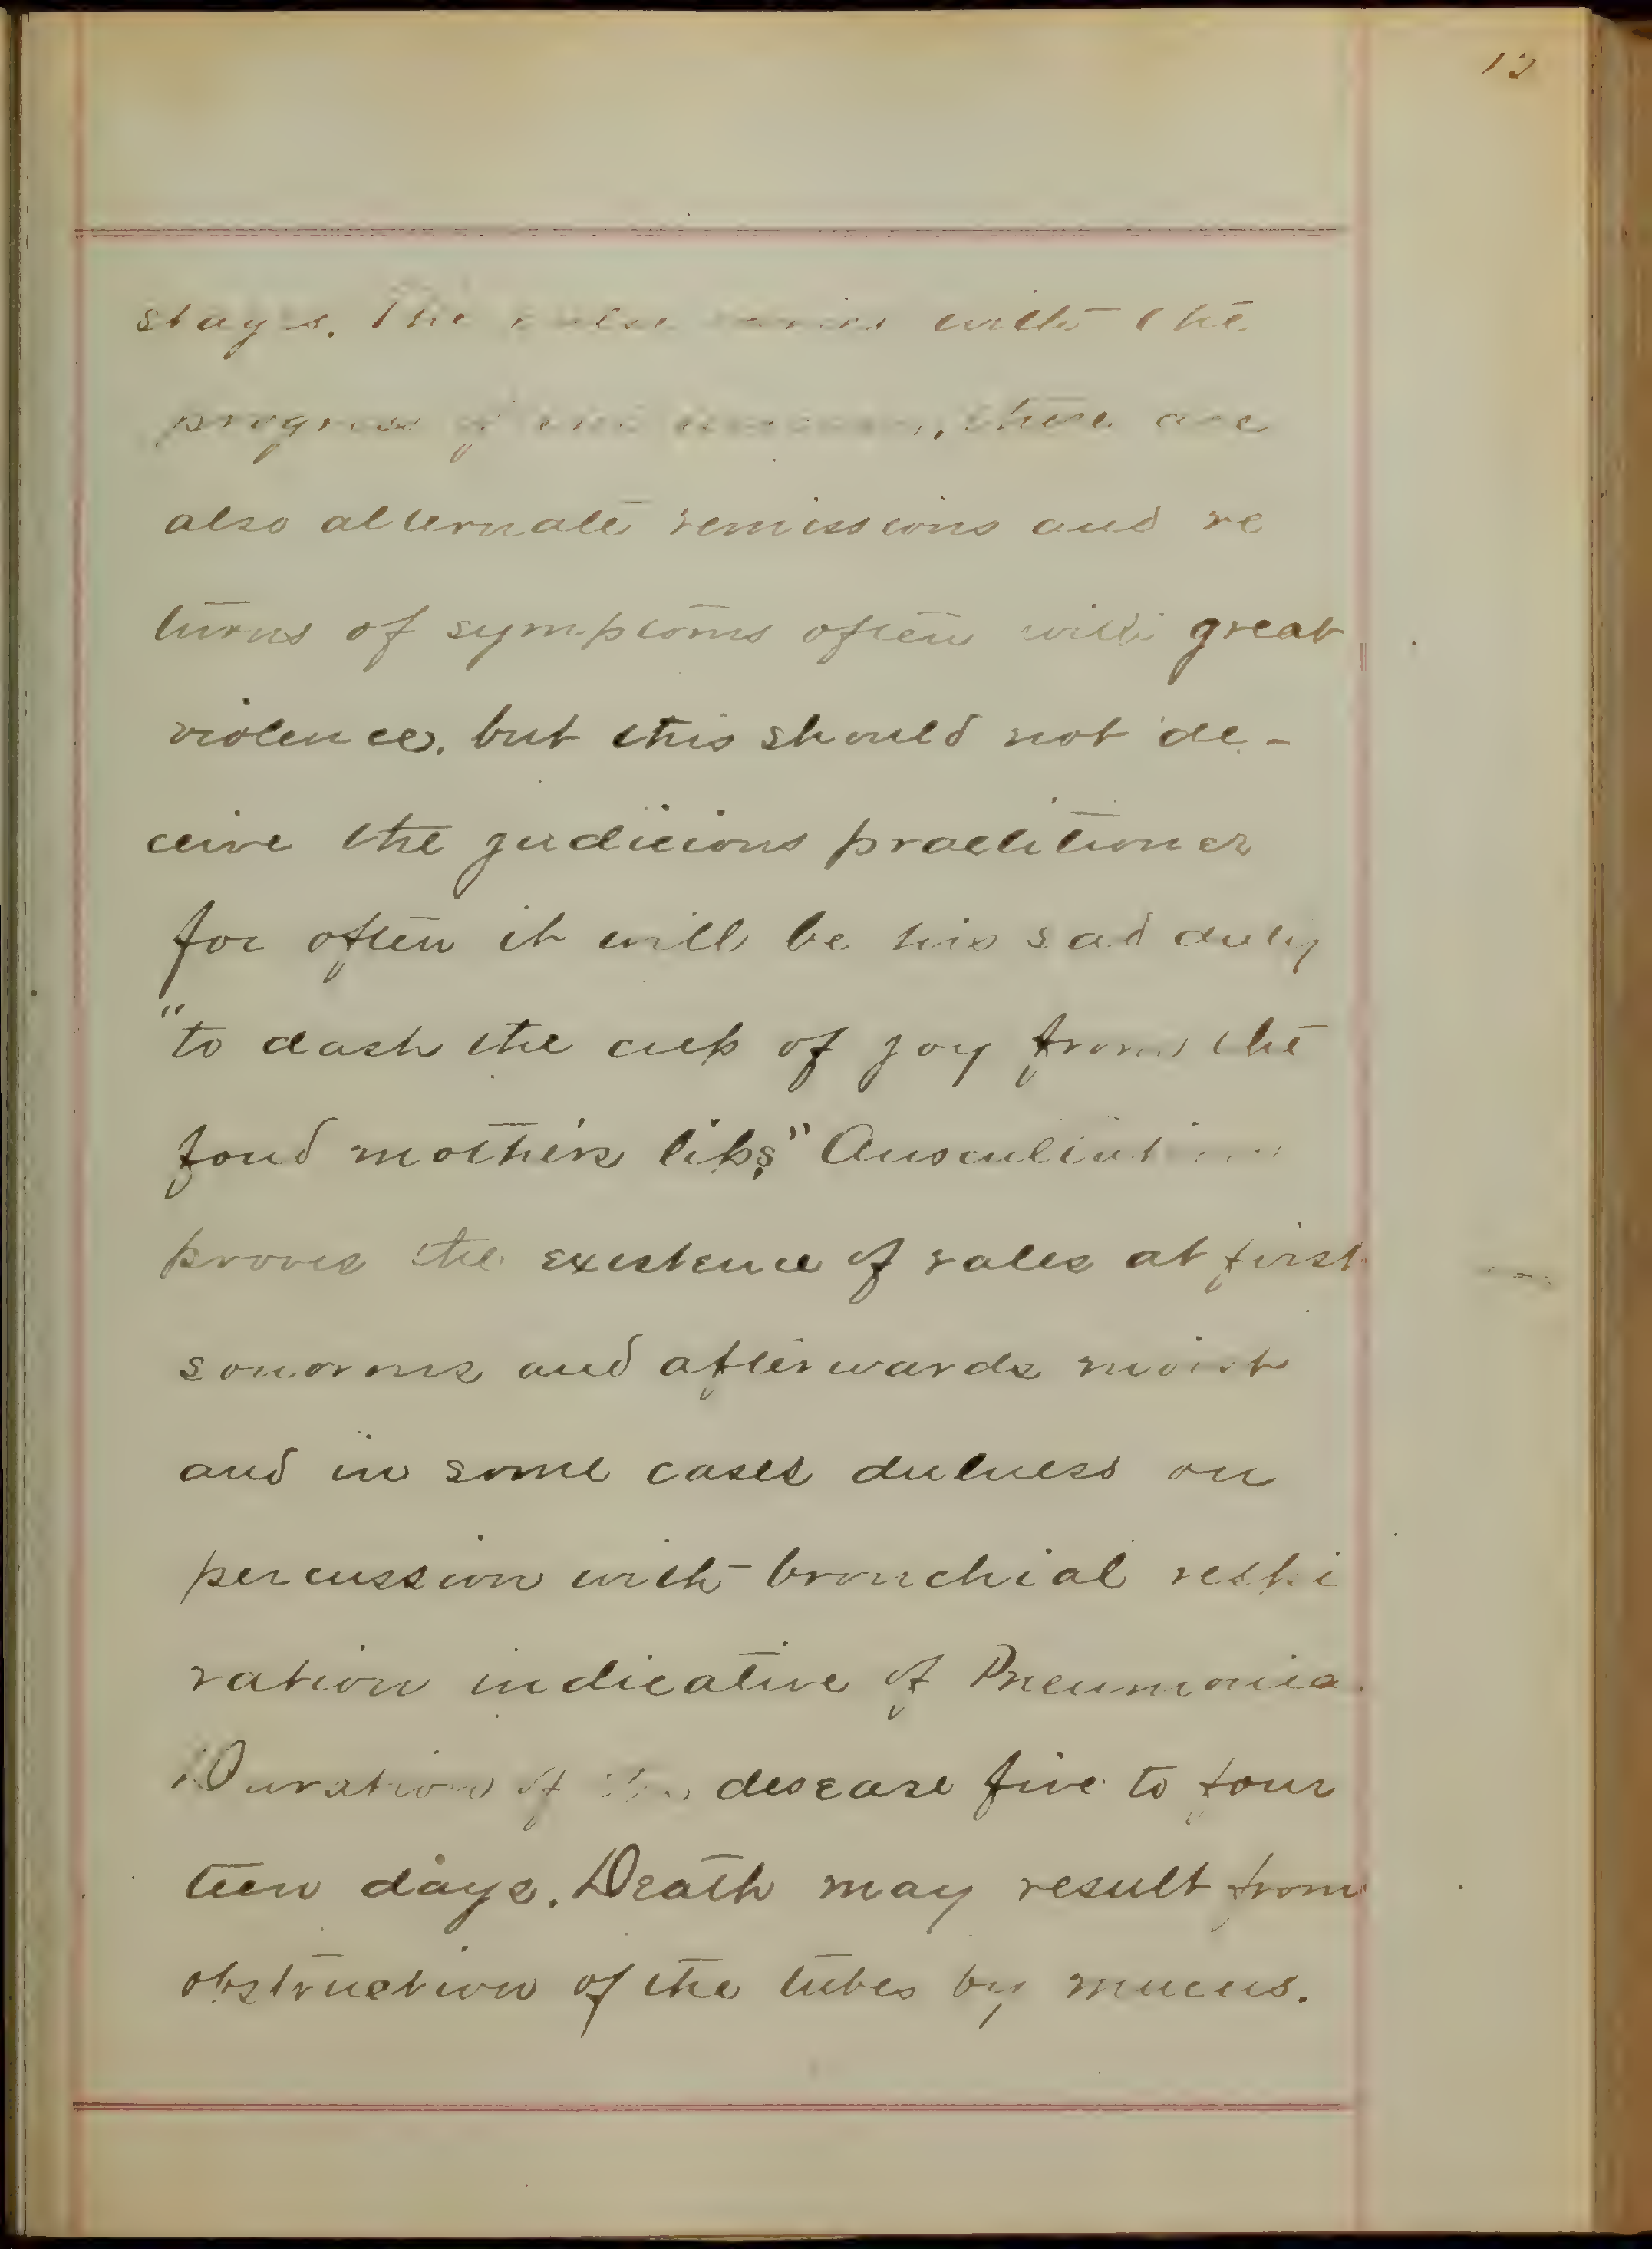 12
stages. The pulse varies with the
progress of the, there are
also alternate remissions and re
turns of symptoms often with great
violence, but this should not de-
ceive the judicious practitioner
for often it will be his sad duty
"to dash the cup of joy from the
fond mothers lips," Auscultation
proves the existence of rales at first
sonorous and afterwards moist
and in some cases dulness on
percussion with bronchial respi
ration indicative of Pneumonia.
Duration of the desease five to four
teen days. Death may result from
obstruction of the tubes by mucus.